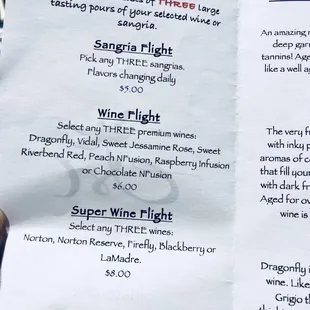 of THREE large
tasting pours of your selected wine or
sangria.
Sangria Flight
Pick any THREE sangrias.
Flavors changing daily
$5.00
Wine Flight
Select any THREE premium wines:
Dragonfly, Vidal, Sweet Jessamine Rose, Sweet
Riverbend Red, Peach NFusion, Raspberry Infusion
or Chocolate NFusion
$6.00
Super Wine Flight
Select any THREE wines:
Norton, Norton Reserve, Firefly, Blackberry or
LaMadre.
$8.00
An amazing
deep
tannins! Aged
like a well
The very
with inky
aromas of
that fill your
with dark
Aged for
wine is
Dragonfly
wine. Like
Grigio